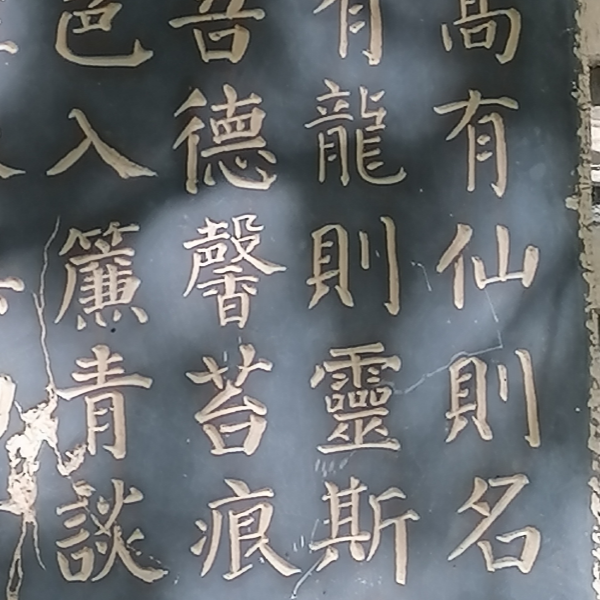 高有仙則名
有龍則靈斯
吾德馨苔痕
色入簾青談